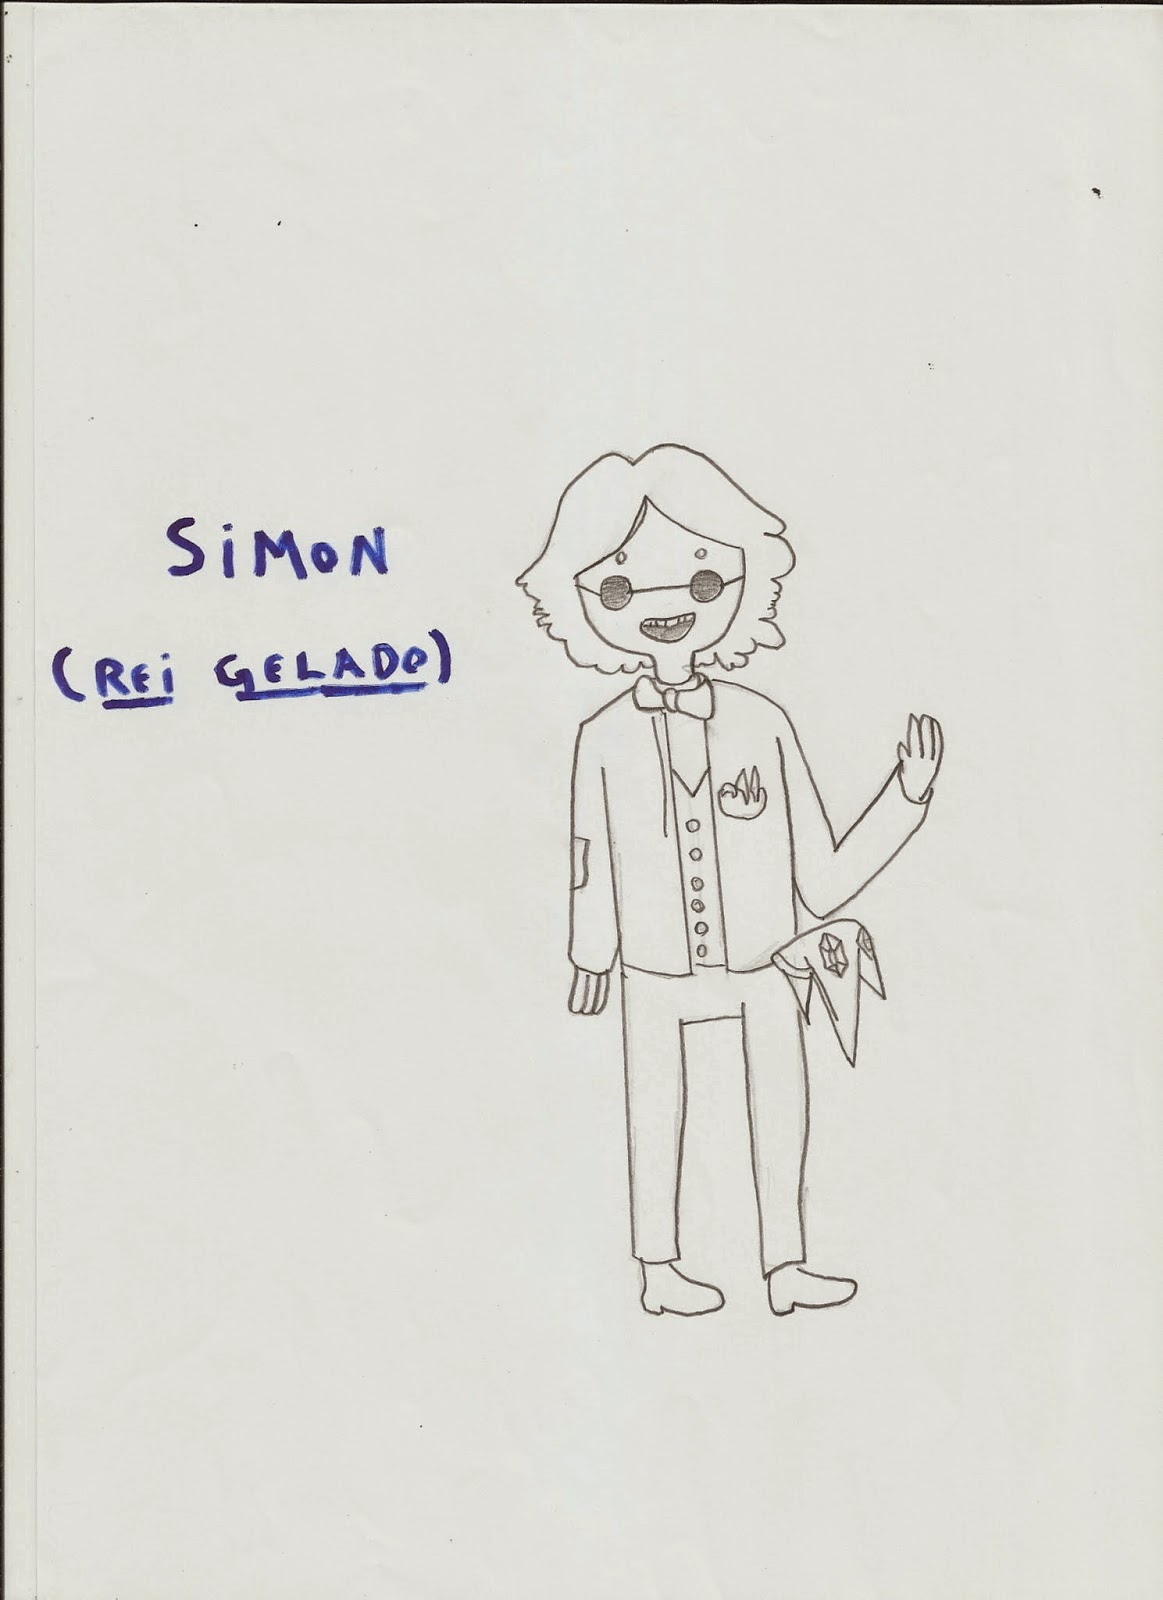 SiMON
(REi GELADO)